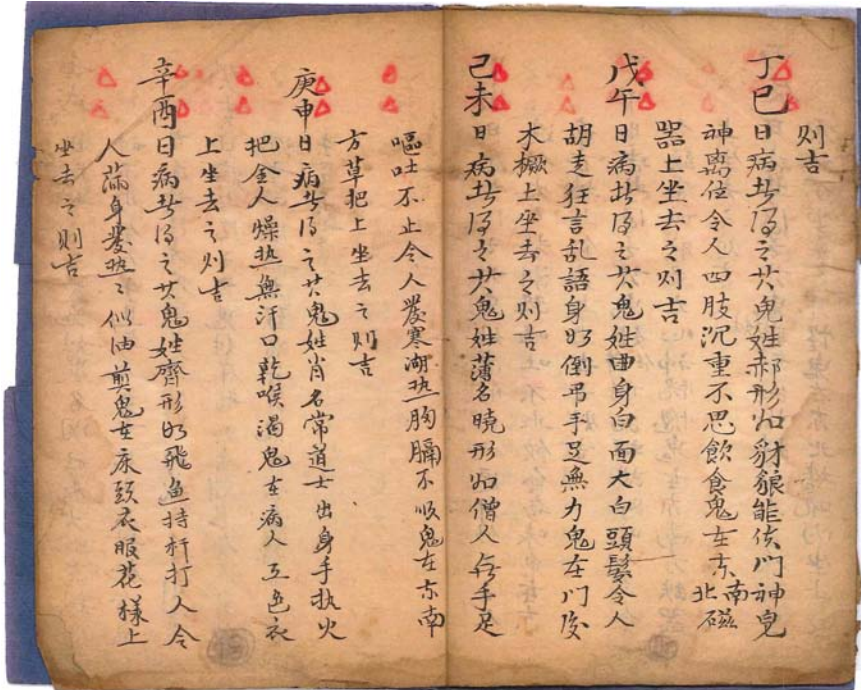 则吉
丁巳日病者得之其鬼姓郝形如豺狼能使门神皂
神离位令人四肢沉重不思飲食鬼在东南北磁
器上坐去之则吉
戊午日病者得之其鬼姓曲身白面大白頭髮令人
胡走狂言乱語身如倒吊手足無力鬼在门後
木橛上坐去之则吉
己未日病者得之其鬼姓蒲名曉形如僧人無手足
嘔吐不止令人發寒潮热胸膈不順鬼在东南
方草把上坐去之则吉
庚申日病者得之其鬼姓肖名常道士出身手执火
把金人燥热無汗口乾喉渴鬼在病人五色衣
上坐去之则吉
辛酉日病者得之其鬼姓齊形如飛鱼持杆打人令
人滿身發热〻似油煎鬼在床頭衣服花樣上
坐去之则吉